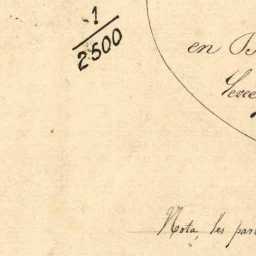 1
2500
en B
Nota, les par